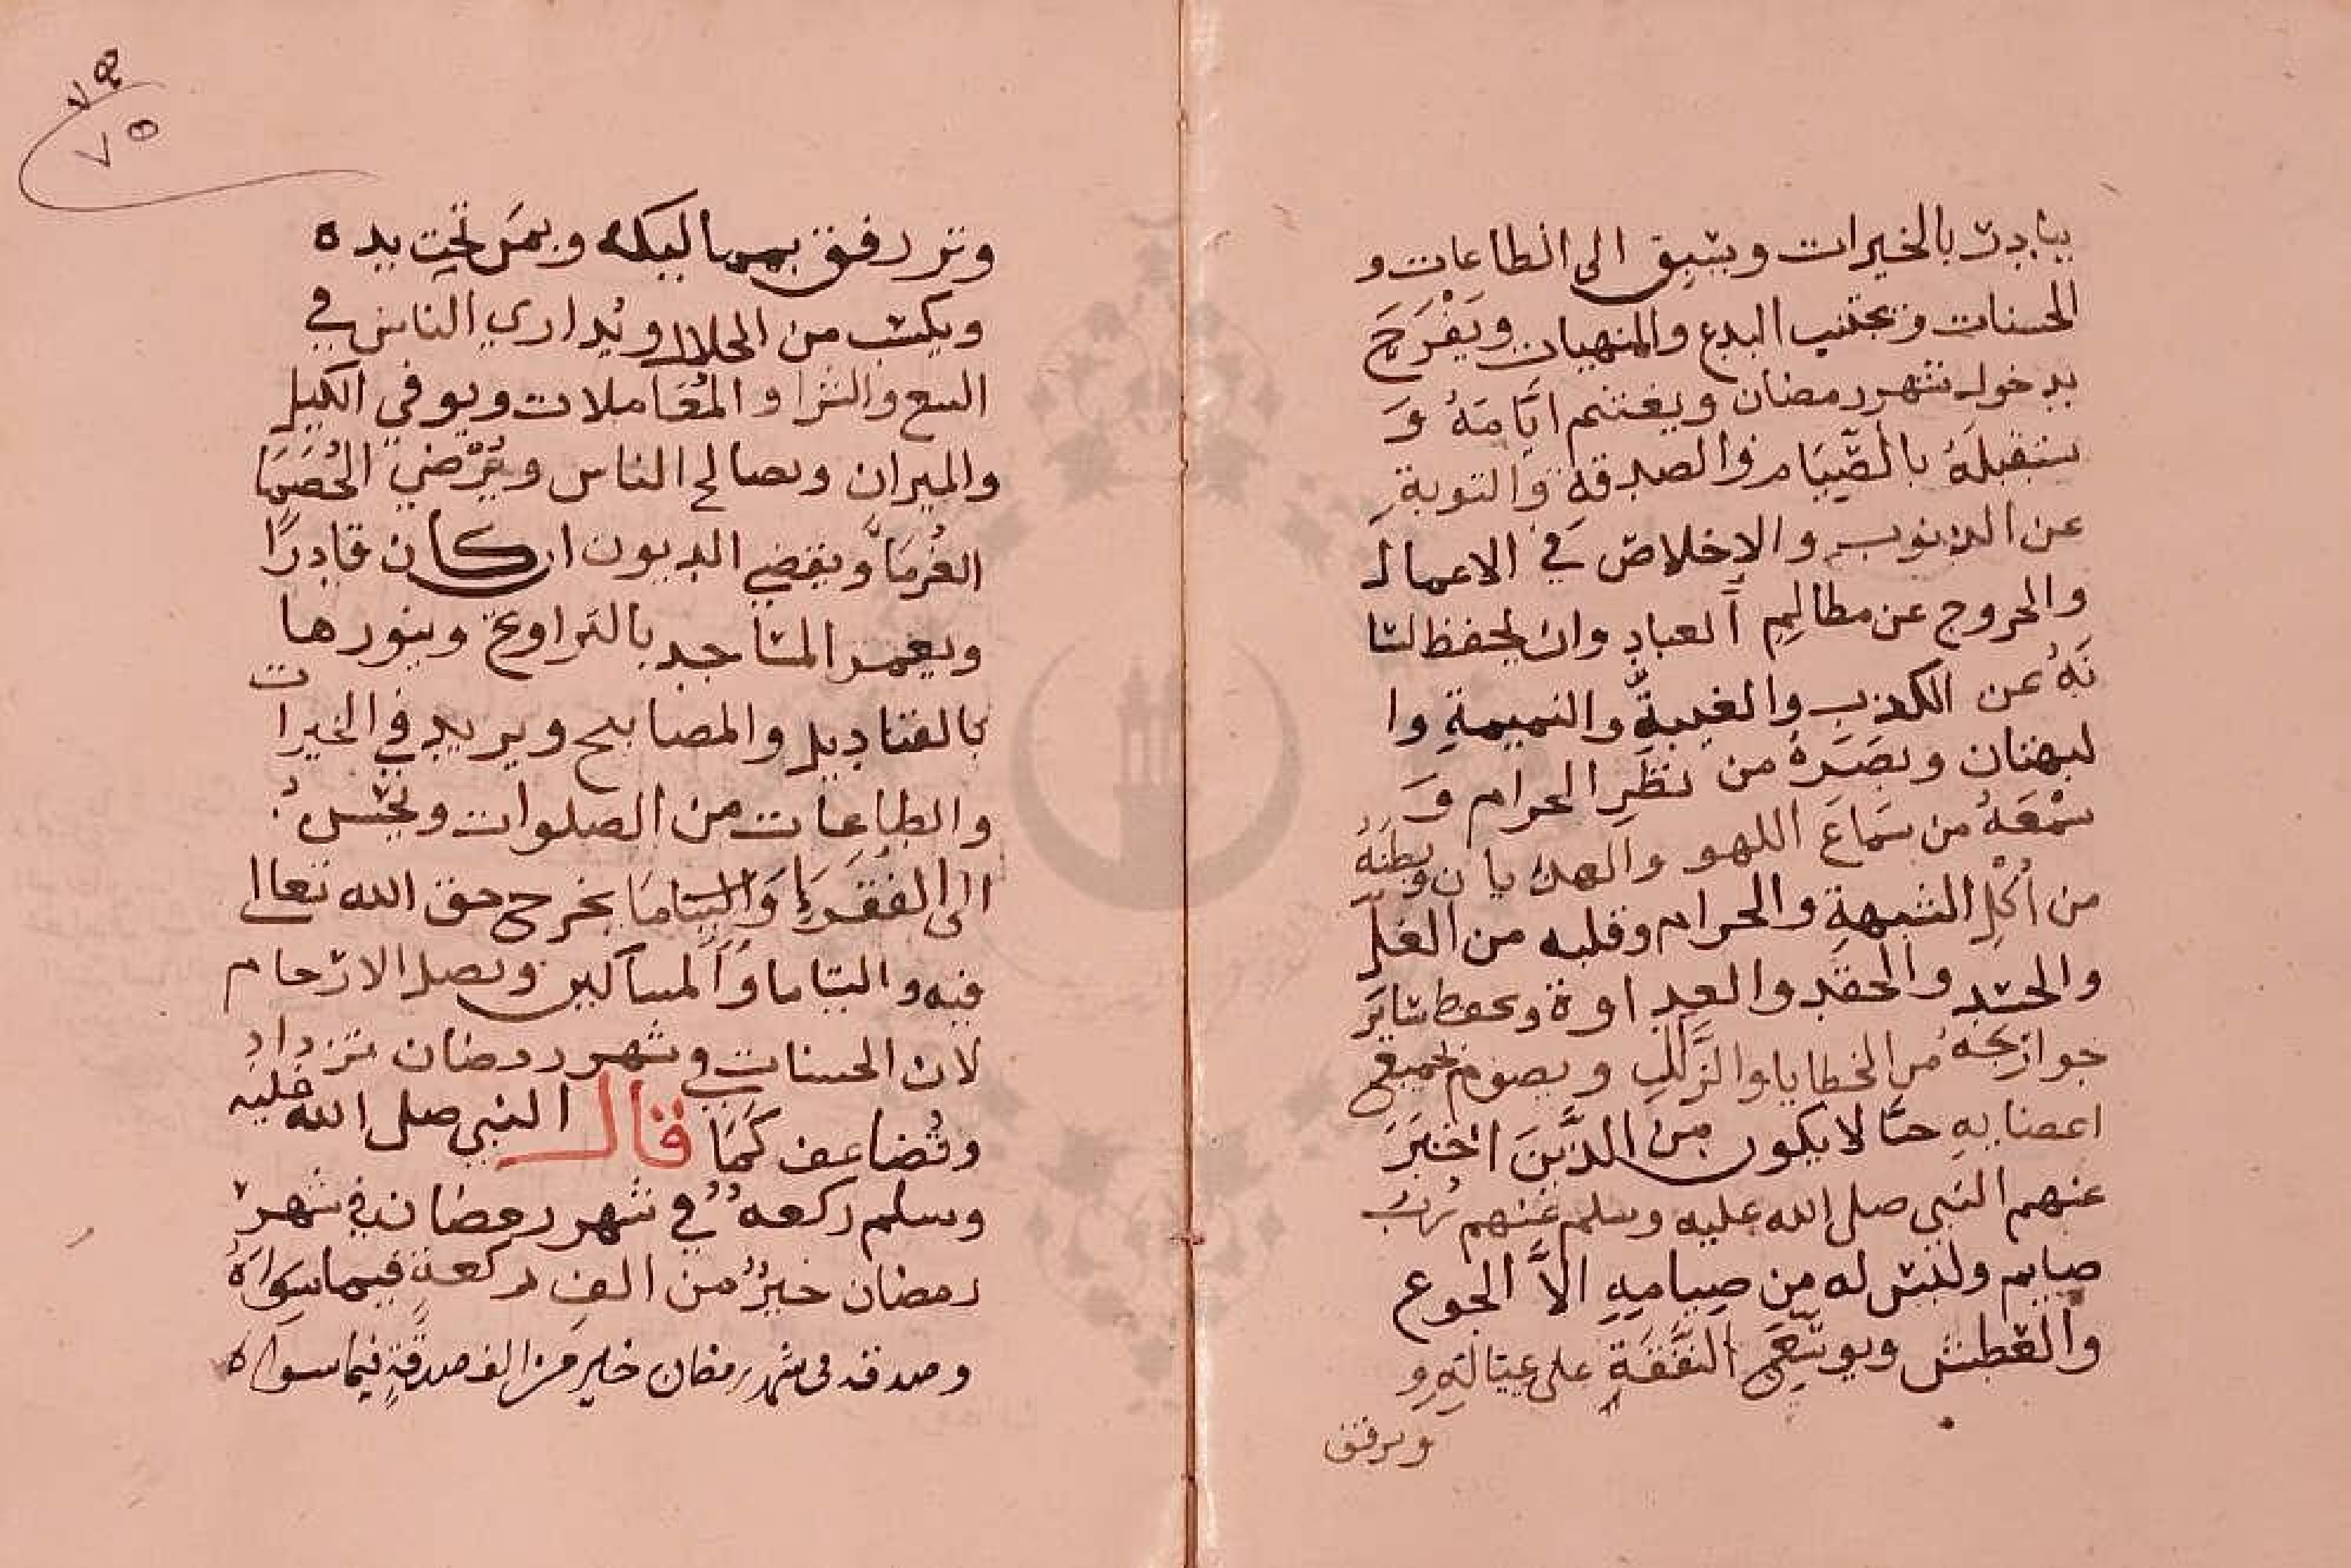 يبادر بالخيرات ويسبق الى الطاعات و
الحسنات ويجتنب البدع والمنهيات ويَفْرَحَ
بدخول شهر رمضان ويغتنم ايَّامَهُ وَ
يستقبلهُ بالصِّيَام والصدقةِ والتوبةِ
عن الذنوب والاخلاص في الاعمال
والخروج عن مطالِمِ العبادِ وان يحفظ لسا
نَهُ عن الكذبِ والغيبةِ والنميمةِ وا
لبهتان وبَصَرَهُ من نظَرِ الحرام وَ
سَمْعَهُ من سَمَاعَ اللهو والهذيان وبطنَهُ
من أَكْلِ الشبهةِ والحرام وقلبه من الغلِّ
والحسد والحقد والعداوة ويحفظ سايَرَ
جوارحِهُ من الخطايا والزَلَلِ ويصوم بجميع
اعضايهِ حتَّا لا يكون من الذَّينَ اخبَرَ
عنهم النبي صلى الله عليه وسلم عنهم رُبَ
صايم وليس له من صِيامِهِ الاَّ الجوع
والعَطش ويوسِّع النفَقَةِ على عيالهِ و
ويرفق
٧٥
ويرفق بمماليكه وبمَن تحت يده
ويكسب من الحلال ويُداري الناس في
البيع والشرا والمُعَاملات ويوفي الكيل
والميزان ويصالح الناس ويُرْضي الخُصَمَا
الغُرمَا ويقضي الديون ان كان قادرًا
ويعمر المساجد بالتراويح وينورها
بالقناديل والمصابيح ويزيد في الخيرات
والطاعات من الصلوات ويحسن
الى الفقرَاء وَاليتامَا يخرج حق الله تعالى
فيه واليتاما وَالمساكين ويصل الارحام
لان الحسنات في شهر رمضان تزداد
وتُضاعف كَمَا قال النبي صلى الله عليه
وسلم ركعهٌ في شهر رمضان في شهر
رمضان خيرٌ من الفِ ركعةٍ فيما سِوَاهُ
وصدقة في شهر رمضان خير من الف صدقةٍ فيما سواه